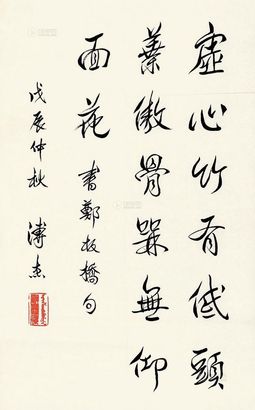 虛心竹有低頭
葉傲骨槑無仰
面花 書鄭板橋句
戊辰仲秋 溥杰